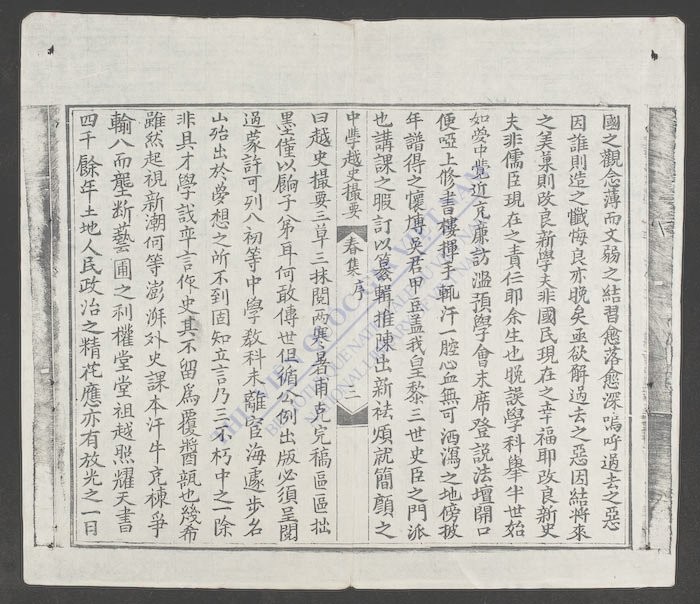 國之觀念薄而文弱之結習愈落愈深嗚呼過去之惡
因誰則造之懺悔良亦晚矣亟欲解過去之惡因結將來
之美菓則改良新學夫非國民現在之幸福耶改良新史
夫非儒臣現在之責任耶余生也晚誤學科舉半世始
如夢中覺近充廉訪濫預學會末席登說法壇開口
便啞上修書樓揮手輒汗一腔心血無可洒瀉之地傍披
年譜得之懷慱吳君甲豆蓋我皇黎三世史臣之門派
也講課之暇訂以纂輯推陳出新袪煩就簡顏之
中學越史撮要 春集 序 三
曰越史撮要三草三抹閱兩寒暑甫克完稿區區拙
墨僅以餉子弟耳何敢傳世但循公例出版必須呈閱
過蒙許可列八初等中學教科未離宦海遽步名
山殆出於夢想之所不到固知立言乃三不朽中之一除
非具才學識率言作史其不留爲覆醬瓿也幾希
雖然起視新潮何等澎湃外史課本汗牛充棟爭
輸八而壟断藝圃之利權堂堂祖越照耀天書
四千餘年土地人民政治之精花應亦有放光之一日
THƯ VIỆN QUỐC GIA VIỆT NAM
BIBLIOTHÈQUE NATIONALE DU VIETNAM
NATIONAL LIBRARY OF VIETNAM